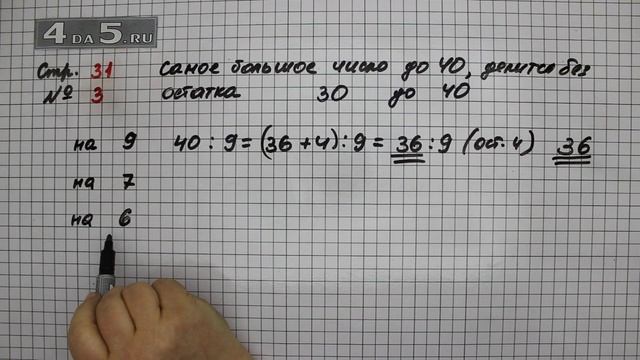 4 DA 5.RU
Стр. 31 Самое большое число до 40, делится без
№ 3 остатка 30 до 40
на 9 40 : 9 = (36 + 4) : 9 = 36 : 9 (ост. 4) 36
на 7
на 6